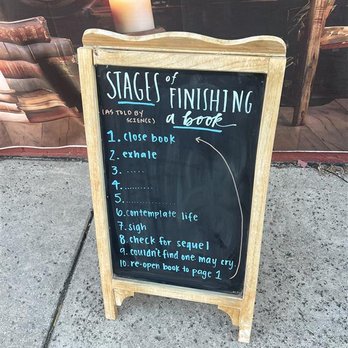 STAGES of
FINISHING
(AS TOLD BY
SCIENCE)
a book
1. close book
2. exhale
3. .....
4. ..........
5. ............
6. contemplate life
7. sigh
8. check for sequel
9. couldn't find one may cry
10. re-open book to page 1